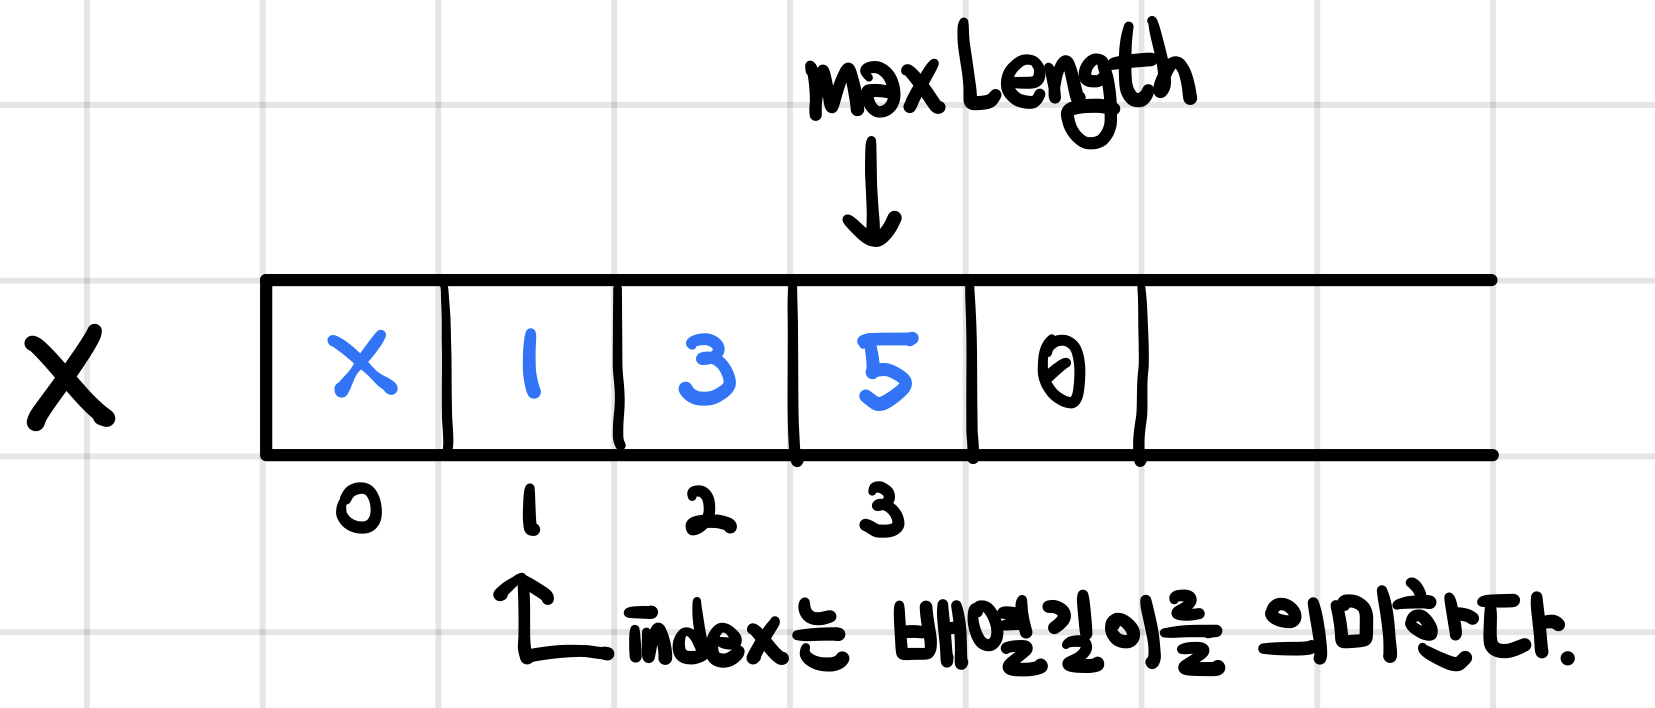 maxLength
X X 1 3 5 0
0 1 2 3
index는 배열길이를 의미한다.